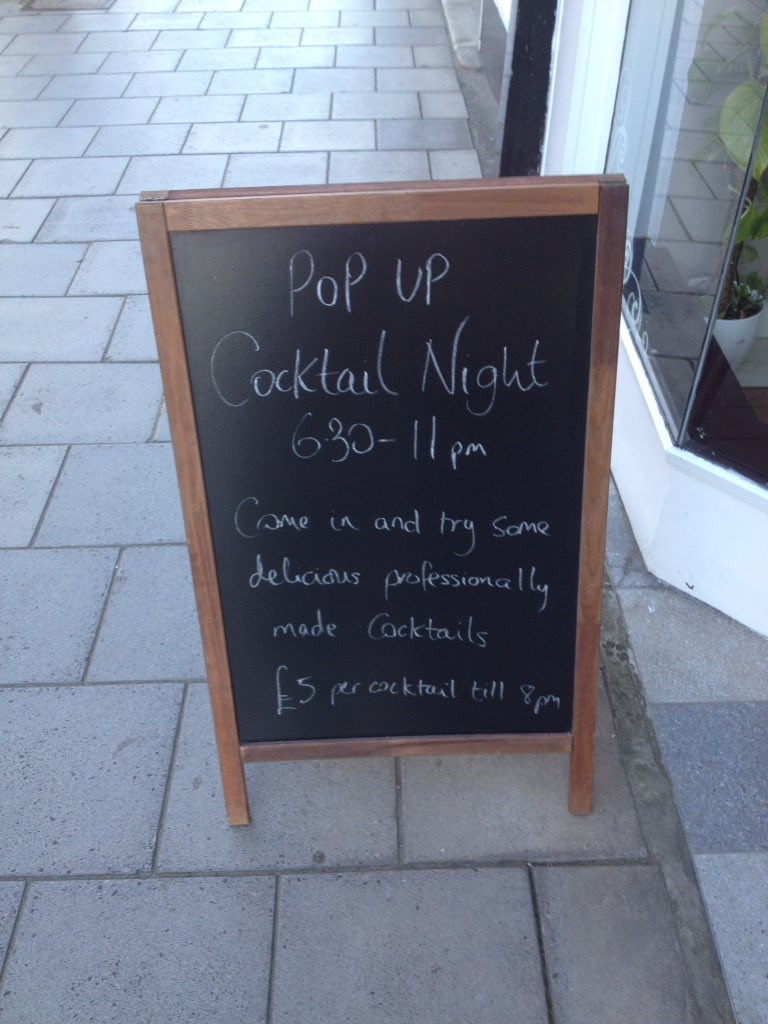 POP UP
Cocktail Night
6.30-11pm
Come in and try some
delicious professionally
made Cocktails
£5 per cocktail till 8pm